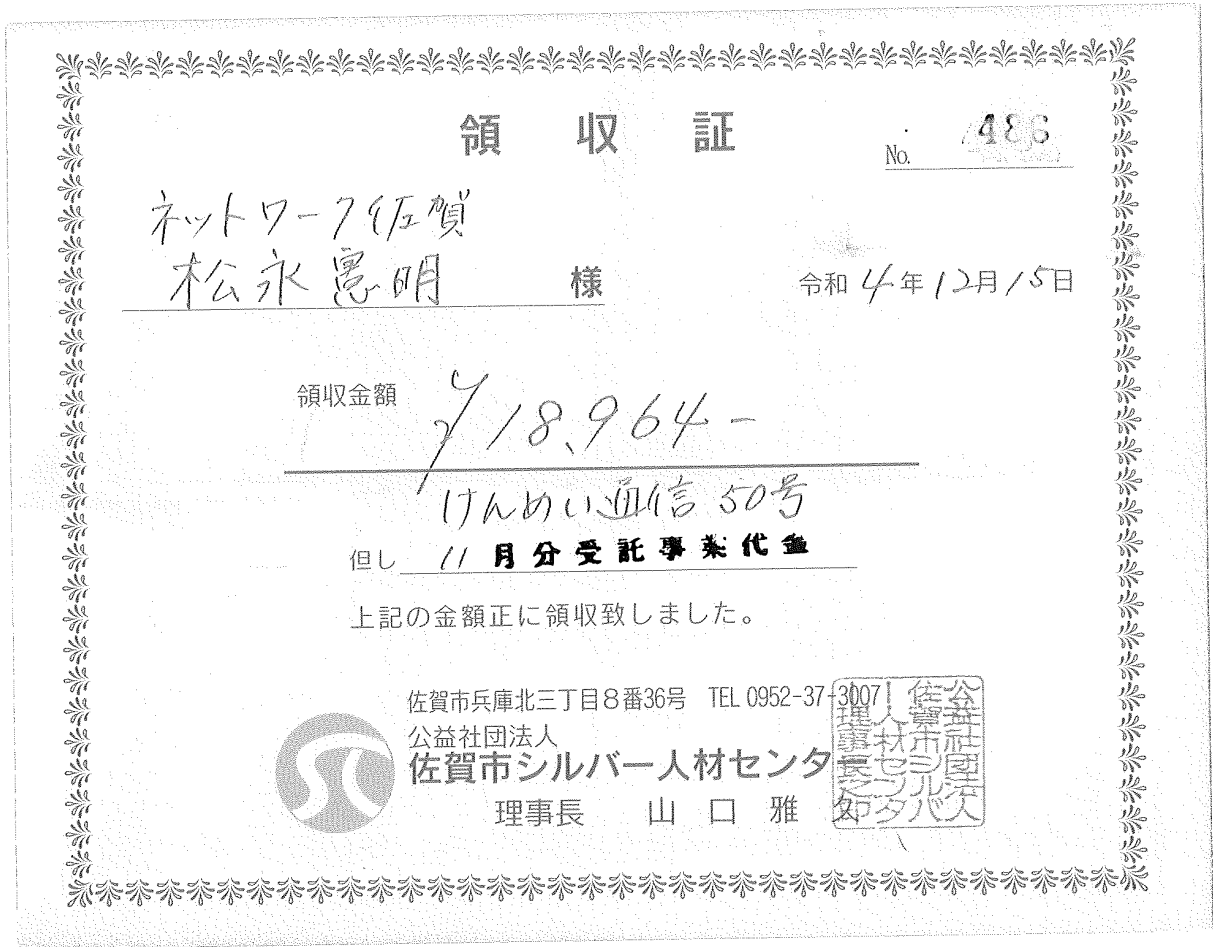 領収証
No. 486
ネットワーク佐賀
松永憲明 様
令和4年12月15日
領収金額 ¥18,964-
けんめい通信50号
但し 11月分受託事業代金
上記の金額正に領収致しました。
佐賀市兵庫北三丁目8番36号 TEL 0952-37-3007
公益社団法人
佐賀市シルバー人材センター
理事長 山口雅久
公益社団法人
佐賀市シルバ
ー人材センタ
ー理事長之印